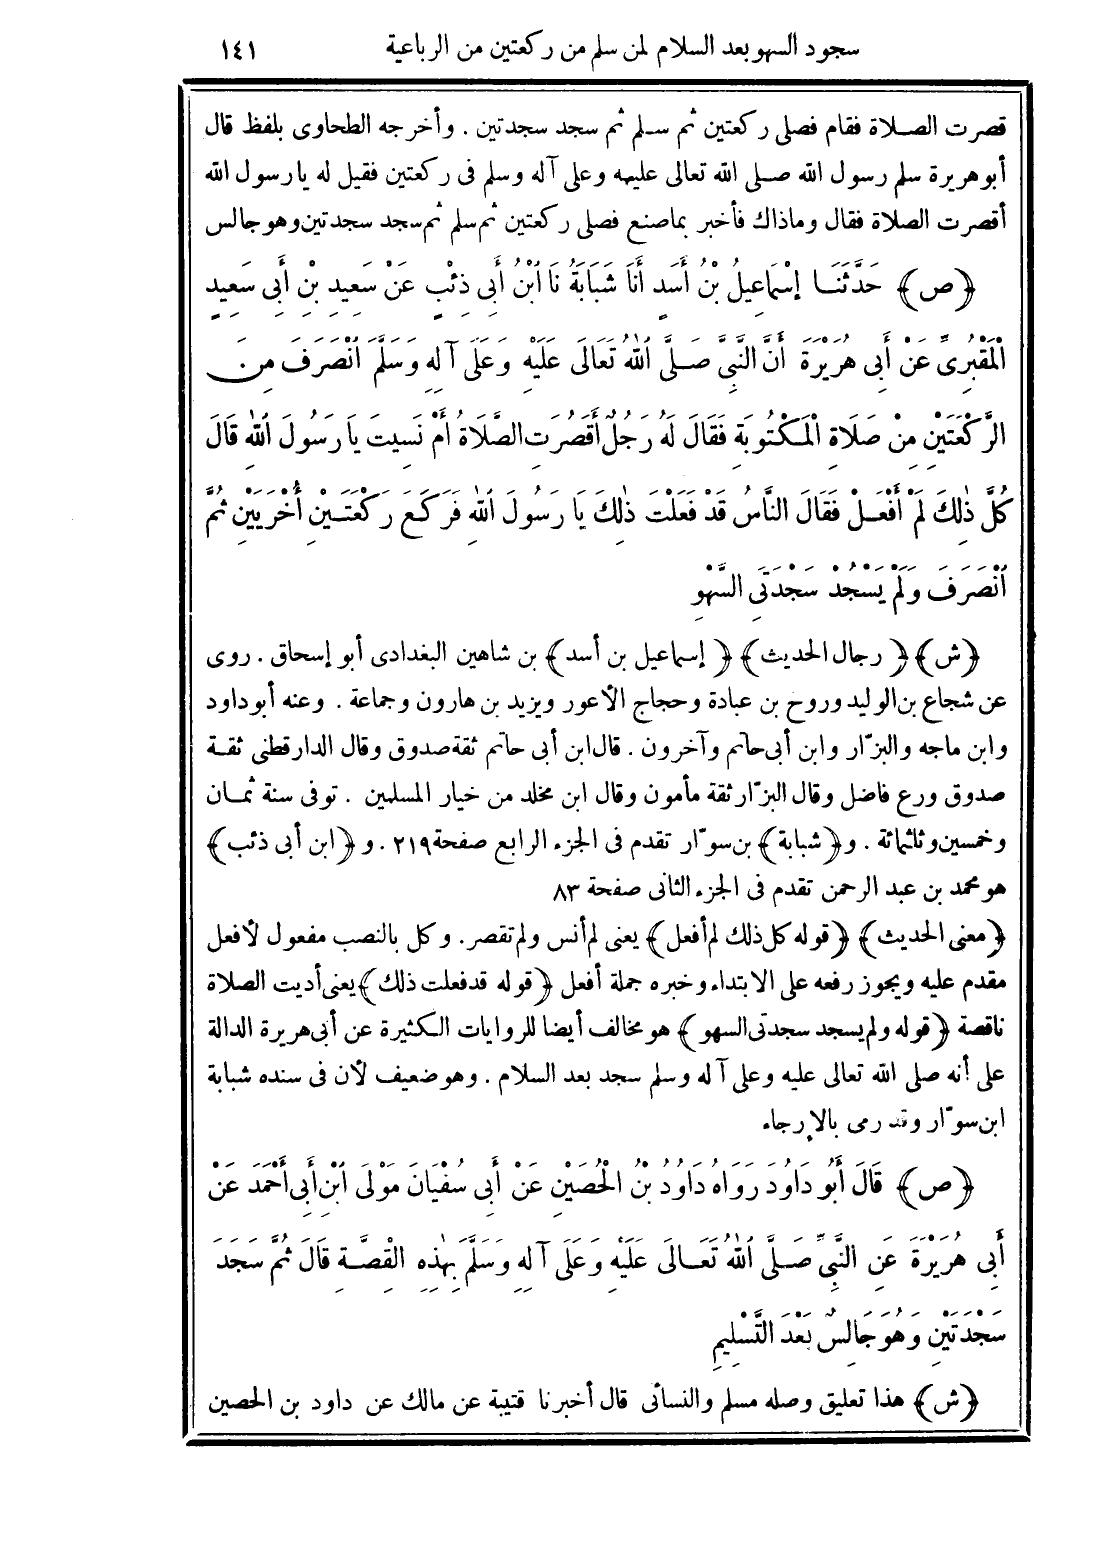 سجود السهو بعد السلام لمن سلم من ركعتين من الرباعية ١٤١
قصرت الصلاة فقام فصلى ركعتين ثم سلم ثم سجد سجدتين . وأخرجه الطحاوى بلفظ قال
أبو هريرة سلم رسول الله صلى الله تعالى عليه وعلى آله وسلم فى ركعتين فقيل له يا رسول الله
أقصرت الصلاة فقال وماذاك فأخبر بماصنع فصلى ركعتين ثم سلم ثم سجد سجدتين وهو جالس
﴿ص﴾ حَدَّثَنَا إِسْمَاعِيلُ بْنُ أَسَدٍ أَنَا شَبَابَةُ نَا ابْنُ أَبِى ذِئْبٍ عَنْ سَعِيدِ بْنِ أَبِى سَعِيدٍ
الْمَقْبُرِىِّ عَنْ أَبِى هُرَيْرَةَ أَنَّ النَّبِىَّ صَلَّى اللهُ تَعَالَى عَلَيْهِ وَعَلَى آلِهِ وَسَلَّمَ انْصَرَفَ مِنَ
الرَّكْعَتَيْنِ مِنْ صَلَاةِ الْمَكْتُوبَةِ فَقَالَ لَهُ رَجُلٌ أَقَصُرَتِ الصَّلَاةُ أَمْ نَسِيتَ يَا رَسُولَ اللهِ قَالَ
كُلَّ ذٰلِكَ لَمْ أَفْعَلْ فَقَالَ النَّاسُ قَدْ فَعَلْتَ ذٰلِكَ يَا رَسُولَ اللهِ فَرَكَعَ رَكْعَتَيْنِ أُخْرَيَيْنِ ثُمَّ
انْصَرَفَ وَلَمْ يَسْجُدْ سَجْدَتَىِ السَّهْوِ
﴿ش﴾ ﴿رجال الحديث﴾ ﴿إسماعيل بن أسد﴾ بن شاهين البغدادى أبو إسحاق . روى
عن شجاع بن الوليد وروح بن عبادة وحجاج الأعور ويزيد بن هارون وجماعة . وعنه أبو داود
وابن ماجه والبزّار وابن أبى حاتم وآخرون . قال ابن أبى حاتم ثقة صدوق وقال الدارقطنى ثقة
صدوق ورع فاضل وقال البزّار ثقة مأمون وقال ابن مخلد من خيار المسلمين . توفى سنة ثمان
وخمسين وثلثمائة . و﴿شبابة﴾ بن سوّار تقدم فى الجزء الرابع صفحة ٢١٩ . و﴿ابن أبى ذئب﴾
هو محمد بن عبد الرحمن تقدم فى الجزء الثانى صفحة ٨٣
﴿معنى الحديث﴾ ﴿قوله كل ذلك لم أفعل﴾ يعنى لم أنس ولم تقصر. وكل بالنصب مفعول لأفعل
مقدم عليه ويجوز رفعه على الابتداء وخبره جملة أفعل ﴿قوله قد فعلت ذلك﴾ يعنى أديت الصلاة
ناقصة ﴿قوله ولم يسجد سجدتى السهو﴾ هو مخالف أيضا للروايات الكثيرة عن أبى هريرة الدالة
على أنه صلى الله تعالى عليه وعلى آله وسلم سجد بعد السلام . وهو ضعيف لأن فى سنده شبابة
ابن سوّار وقد رمى بالإرجاء
﴿ص﴾ قَالَ أَبُو دَاوُدَ رَوَاهُ دَاوُدُ بْنُ الْحُصَيْنِ عَنْ أَبِى سُفْيَانَ مَوْلَى ابْنِ أَبِى أَحْمَدَ عَنْ
أَبِى هُرَيْرَةَ عَنِ النَّبِىِّ صَلَّى اللهُ تَعَالَى عَلَيْهِ وَعَلَى آلِهِ وَسَلَّمَ بِهٰذِهِ الْقِصَّةِ قَالَ ثُمَّ سَجَدَ
سَجْدَتَيْنِ وَهُوَ جَالِسٌ بَعْدَ التَّسْلِيمِ
﴿ش﴾ هذا تعليق وصله مسلم والنسائى قال أخبرنا قتيبة عن مالك عن داود بن الحصين